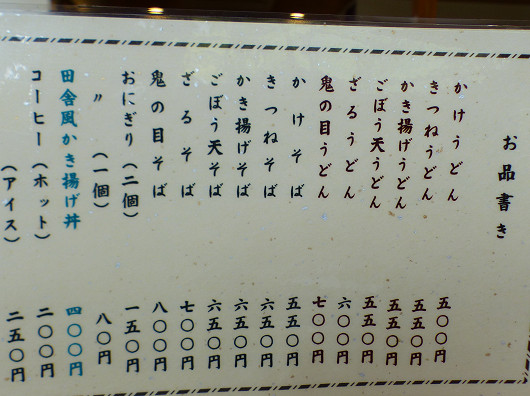 お品書き
かけうどん 五〇〇円
きつねうどん 五五〇円
かき揚げうどん 五五〇円
ごぼう天うどん 五五〇円
ざるうどん 六〇〇円
鬼の目うどん 七〇〇円
かけそば 五五〇円
きつねそば 六五〇円
かき揚げそば 六五〇円
ごぼう天そば 六五〇円
ざるそば 七〇〇円
鬼の目そば 八〇〇円
おにぎり（二個） 一五〇円
〃（一個） 八〇円
田舎風かき揚げ丼 四〇〇円
コーヒー（ホット） 二〇〇円
（アイス） 二五〇円